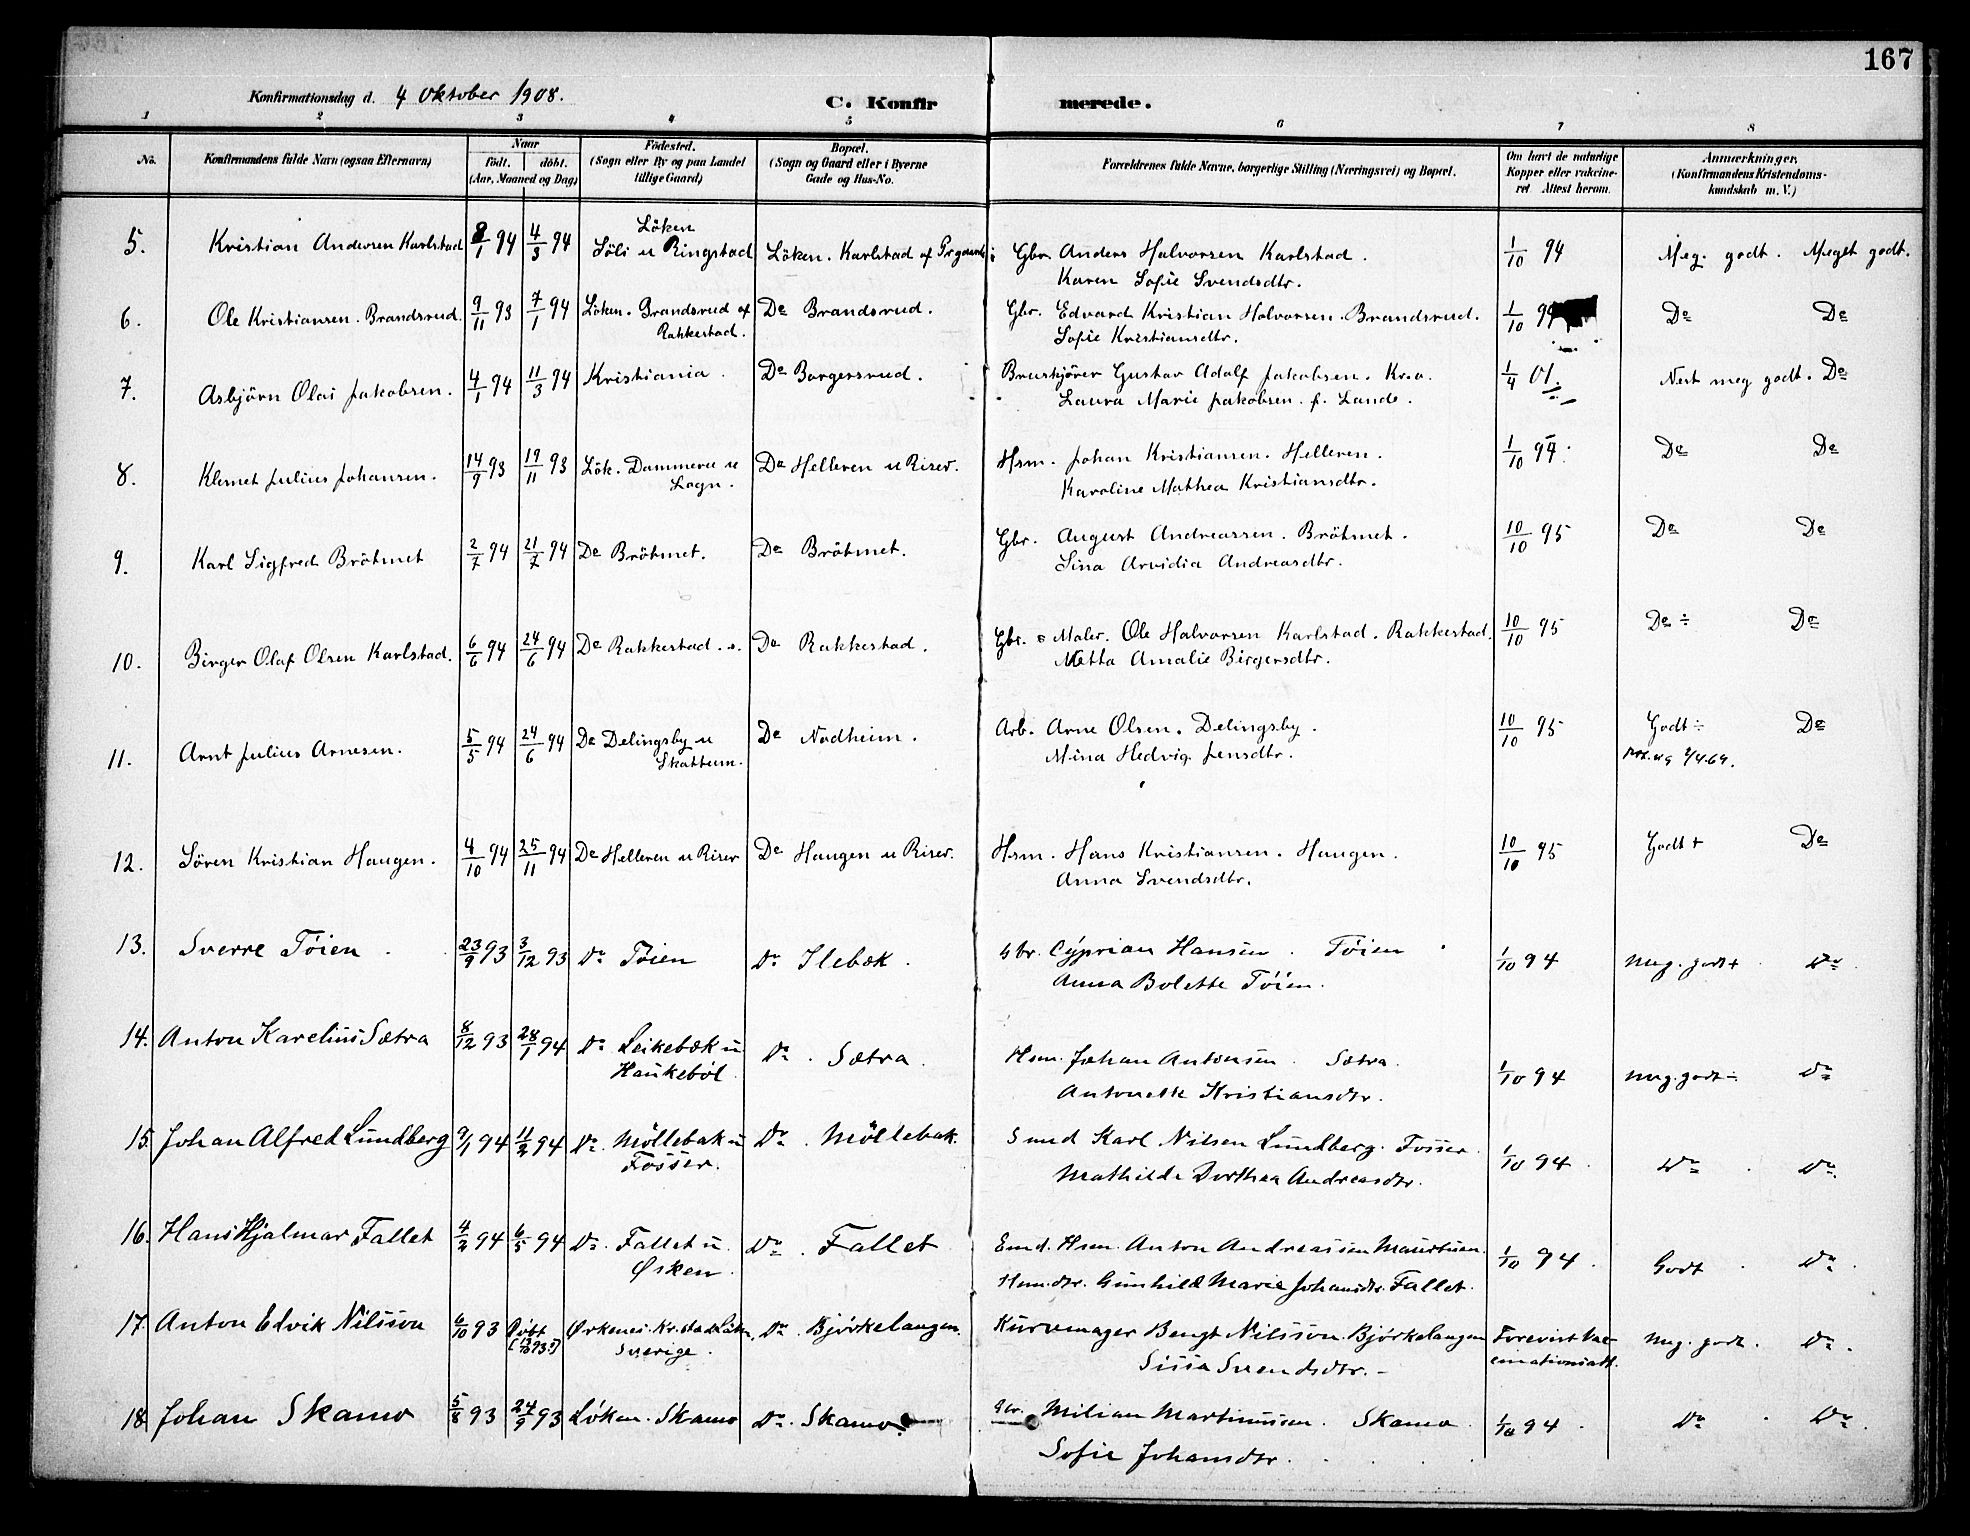 167
Konfirmationsdag d. 4 Oktober 1908.
C. Konfirmerede.
1 2 3 4 5 6 7 8
No.
Konfirmandens fulde Navn (ogsaa Efternavn)
Naar
født. døbt.
(Aar, Maaned og Dag)
Fødested.
(Sogn eller By og paa Landet
tillige Gaard)
Bopæl.
(Sogn og Gaard eller i Byerne
Gade og Hus-No.
Forældrenes fulde Navne, borgerlige Stilling (Næringsvei) og Bopæl.
Om havt de naturlige
Kopper eller vakcine-
ret Attest herom.
Anmærkninger,
(Konfirmandens Kristendoms-
kundskab m. V.)
Löken
5. Kristian Andersen Karlstad 8/1 94 4/3 94 Söli u Ringstad Löken. Karlstad af Gbr. Anders Halvorsen Karlstad. 1/10 94 Meg. godt. Meget godt.
Karen Sofie Svendsdtr.
6. Ole Kristiansen. Brandsrud. 9/11 93 7/1 94 Löken. Brandsrud af De Brandsrud. Gbr. Edvard Kristian Halvorsen. Brandsrud. 1/10 94 De De
Rakkestad. Sofie Kristiansdtr.
7. Asbjörn Olai Jakobsen. 4/1 94 11/3 94 Kristiania. De Borgersrud. Gustav Adolf Jakobsen. Kr.a. 1/4 01. Next meg godt. De
Laura Marie Jakobsen. f. Lande.
8. Klemet Julius Johansen. 14/9 93 19/11 93 Lök. Dammern u De Helleren u Riser. Hsm. Johan Kristiansen. Helleren. 1/10 94. De De
Sogn. Karoline Mathea Kristiansdtr.
9. Karl Sigfred Bråtmet 2/7 94 21/7 94 De Bråtmet. De Bråtmet. Gbr. August Andreassen. Bråtmet. 10/10 95 De De
Lina Arvidia Andreasdtr.
10. Birger Olaf Olsen Karlstad. 6/6 94 24/6 94 De Rakkestad. De Rakkestad. Gbr. o Maler. Ole Halvorsen Karlstad. Rakkestad. 10/10 95 De ÷ De
Metta Amalie Birgersdtr.
11. Arnt Julius Arnesen. 5/5 94 24/6 94 De Delingsby u De Nodheim. Arb. Arne Olsen. Delingsby. 10/10 95 Godt ÷ De
Skattum. Mina Hedvig Jensdtr. 2/4.69.
12. Sören Kristian Haugen. 4/10 94 25/11 94 De Helleren u Riser De Haugen u Riser. Hsm. Hans Kristiansen. Haugen. 10/10 95 Godt + De
Anna Svendsdtr.
13. Sverre Tøien 23/9 93 3/12 93 Do Tøien Do Ilebæk. Gbr. Cyprian Hansen. Tøien 1/10 94 Meg. godt + Do
Anna Bolette Tøien.
14. Anton Karelius Sætra 8/12 93 28/1 94 Do Leikebæk u Do. Sætra. Hsm. Johan Antonsen. Sætra. 1/10 94 Meg. godt ÷ Do
Haukebøl. Antonette Kristiansdtr.
15. Johan Alfred Lundberg 9/1 94 11/2 94 Do. Möllebæk u Do. Möllebæk. Smed Karl Nilsen Lundberg. Fosser. 1/10 94. Do. Do.
Fosser. Mathilde Dorthea Andreasdtr.
16. Hans Hjalmar Fallet 4/2 94 6/5 94 Do. Fallet u. Do. Fallet Emd. Hsm. Anton Andreassen 1/10 94. Godt Do.
Ørken. Hsm.dtr. Gunhild Marie Johansdtr. Fallet.
17. Anton Edvik Nilsson 6/10 93 Døbt Ørkenes. Do. Björkelangen. Kurvmager Bengt Nilsson. Björkelangen Forevist Vac- Meg. godt. Do.
Sverige. Sissa Svendsdtr. – cinationsatt.
18. Johan Skamo 5/8 93 24/9 93 Löken. Skamo Do. Skamo. Gbr. Milian Martinusen. Skamo 1/10 94. Do Do.
Sofie Johansdtr.